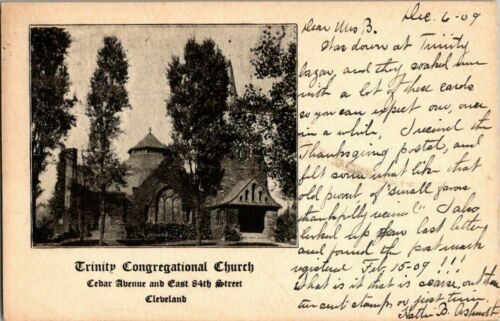 Dec. 6-09
Dear Mrs B.
Was down at Trinity
bazar, and they soaked me
with a lot of these cards
so you can expect one, once
in a while. I received the
Thanksgiving postal, and
felt some what like that
old proverb of "small favors
thankfully received." I also
looked up your last letter
and found the postmark
registered Feb. 15-09 !!!
What is it that is scarce, out there
stamps or just time.
Hattie B.
Trinity Congregational Church
Cedar Avenue and East 84th Street
Cleveland